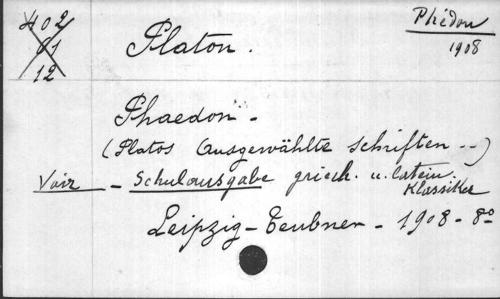 402
61
12
Platon.
Phédon
1908
Phaedon -
(Platos Ausgewählte Schriften ..)
Voir - Schulausgabe griech. u. latein. Klassiker
Leipzig - Teubner - 1908 - 8º